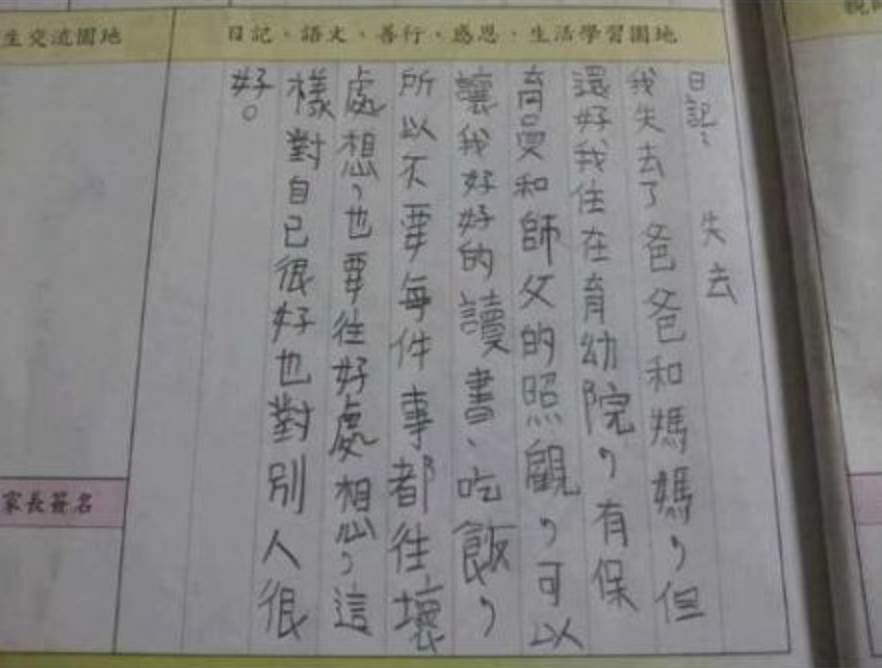 生交流園地
日記、語文、善行、感恩、生活學習園地
日記: 失去
我失去了爸爸和媽媽,但
還好我住在育幼院,有保
育員和師父的照顧,可以
讓我好好的讀書、吃飯,
所以不要每件事都往壞
處想,也要往好處想,這
樣對自己很好也對別人很
好。
家長簽名